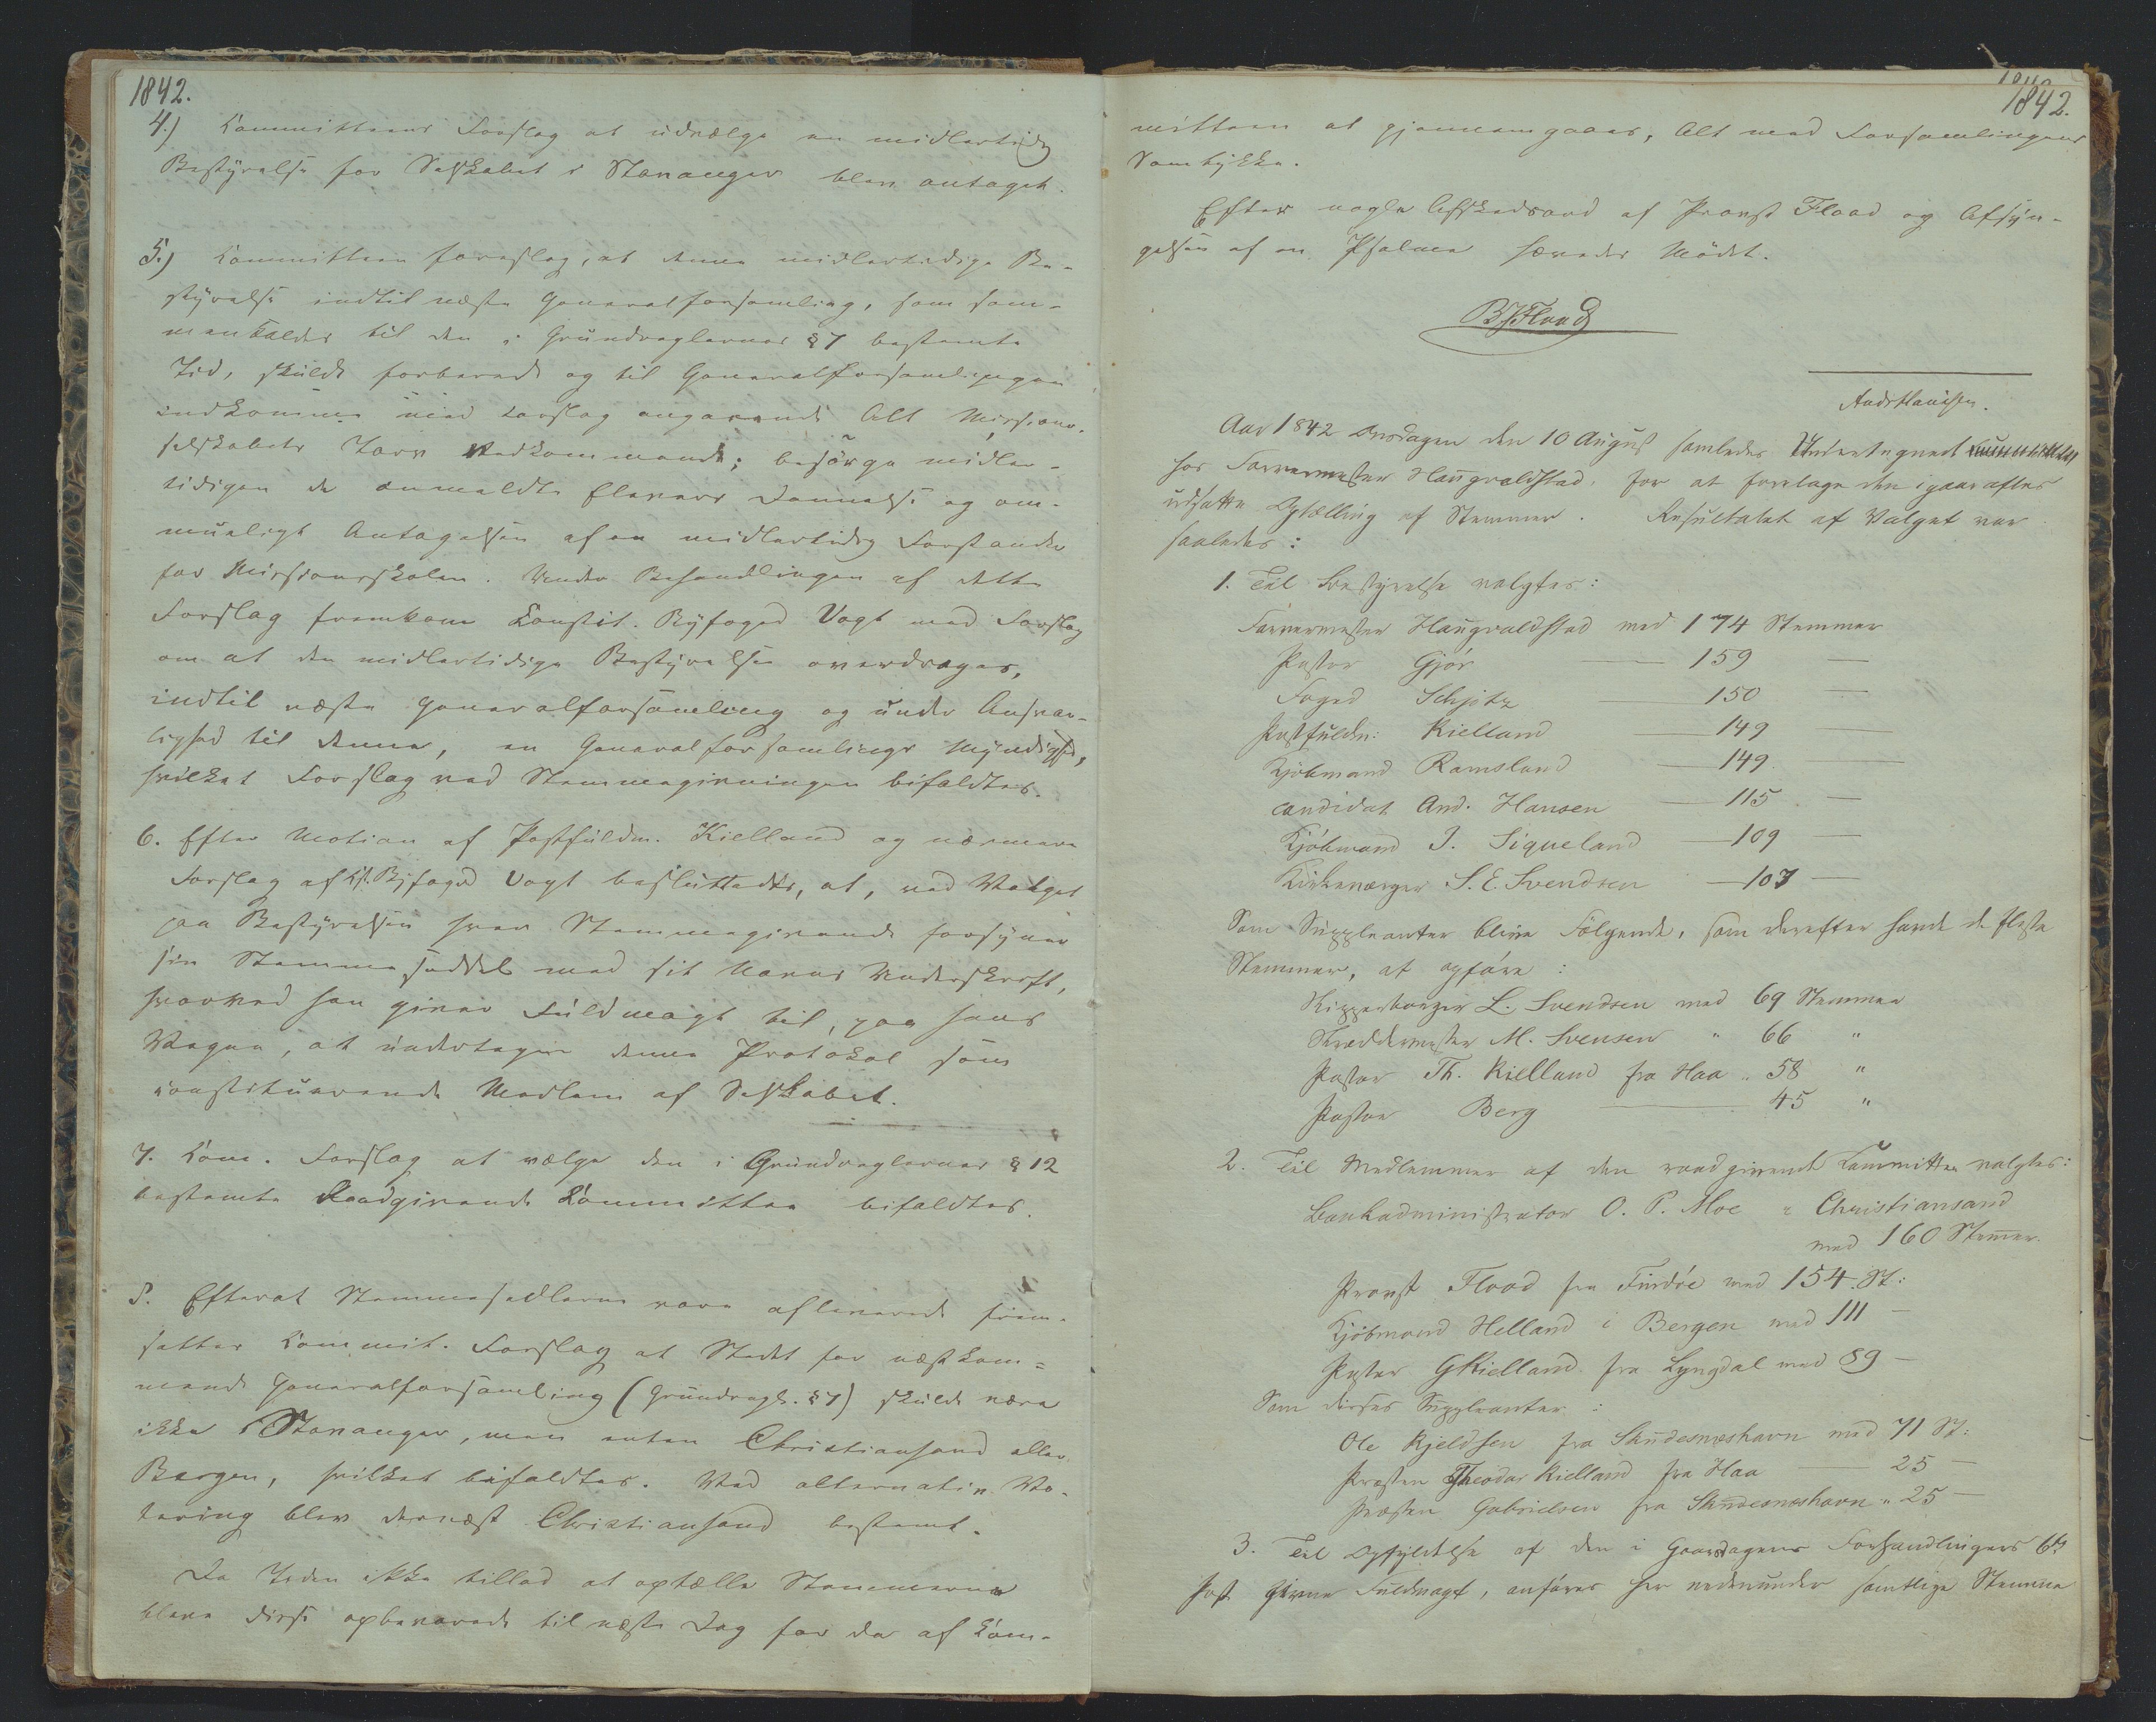 1842.
4.) Committeens Forslag at udvælge en midlertidig
Bestÿrelse for Selskabet i Stavanger blev antaget.
5.) Committeen foreslog, at denne midlertidige Be-
stÿrelse indtil næste Generalforsamling, som sam-
menkaldes til den i Grundreglernes § 7 bestemte
Tid, skulde forberede og til Generalforsamlingen
indkomme med Forslag angaaende Alt Missions-
selskabets Tarv Vedkommende; besørge midler-
tidigen de anmeldte Elevers Dannelse og om-
mueligt Antagelsen af en midlertidig Forstander
for Missionsskolen. Under Behandlingen af dette
Forslag fremkom Constit. Bÿfoged Vogt med Forslag
om at den midlertidige Bestÿrelse overdrages,
indtil næste Generalforsamling og under Ansvar-
lighed til denne, en Generalforsamlings Mÿndighed,
hvilket Forslag ved Stemmegivningen bifaldtes.
6. Efter Motion af Postfuldm. Kielland og nærmere
Forslag af Kst. Bÿfoged Vogt besluttedes, at, ved Valget
paa Bestÿrelsen hver Stemmegivende forsÿner
sin Stemmeseddel med sit Navns Underskrift,
hvorved han giver Fuldmagt til, paa hans
Vegne, at undertegne denne Protokol som
constituerende Medlem af Selskabet.
7. Com. Forslag at vælge den i Grundreglernes § 12
bestemte Raadgivende Committee bifaldtes.
8. Efterat Stemmesedlerne vare afleverede frem-
satter Commit. Forslag at Stedet for næstkom=
mende Generalforsamling (Grundregl. § 7) skulde være
ikke i Stavanger, men enten Christiansand eller
Bergen, hvilket bifaldtes. Ved alternativ Vo-
tering blev dernæst Christiansand bestemt.
Da Tiden ikke tillod at optælle Stemmerne
bleve disse opbevarede til næste Dag for da af Com-
1842.
mitteen at gjennemgaaes, Alt med Forsamlingens
Samtÿkke.
Efter nogle Afskedsord af Provst Flood og Afsÿn-
gelsen af en Psalme hævedes Mødet.
BJFlood
AndrHauschen.
Aar 1842 Onsdagen den 10 August samledes Undertegnede
hos Farvermester Haugvaldstad, for at foretage den igaar aftes
udsatte Optælling af Stemmer. Resultatet af Valget var
saaledes:
1. Til Bestÿrelse valgtes:
Farvermester Haugvaldstad med 174 Stemmer
Pastor Gjør — 159 —
Foged Schjötz 150 —
Postfuldm: Kielland — 149 —
Kjöbmand Ramsland — 149 —
Candidat And. Hansen — 115 —
Kjöbmand J. Siqueland — 109 —
Kirkeværger S. E. Svendsen — 107 —
Som Suppleanter blive Fölgende, som derefter havde de fleste
Stemmer, at opföre:
Skipperborger L. Svendsen med 69 Stemmer
Skreddermester M. Svensen " 66 "
Pastor Th. Kielland fra Haa " 58 "
Pastor Berg — 45 "
2. Til Medlemmer af den raadgivende Committee valgtes:
Bankadministrator O. P. Moe i Christiansand
med 160 Stemmer.
Provst Flood fra Findöe med 154 St:
Kjöbmand Helland i Bergen med 111 —
Pastor GKielland fra Lyngdal med 89 —
Som disses Suppleanter:
Ole Kjeldsen fra Skudesneshavn med 71 St:
Præsten Theodor Kielland fra Haa — 25 —
Præsten Gabrielsen fra Skudesneshavn " 25 —
3. Til Opfÿldelse af den i Gaarsdagens Forhandlingers 6te
Post Givne Fuldmagt, anføres her nedenunder samtlige Stemme